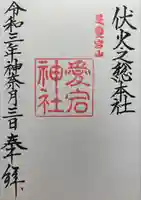 伏火之総本社
愛宕山
愛宕
神社
令和三年神無月三日奉拝